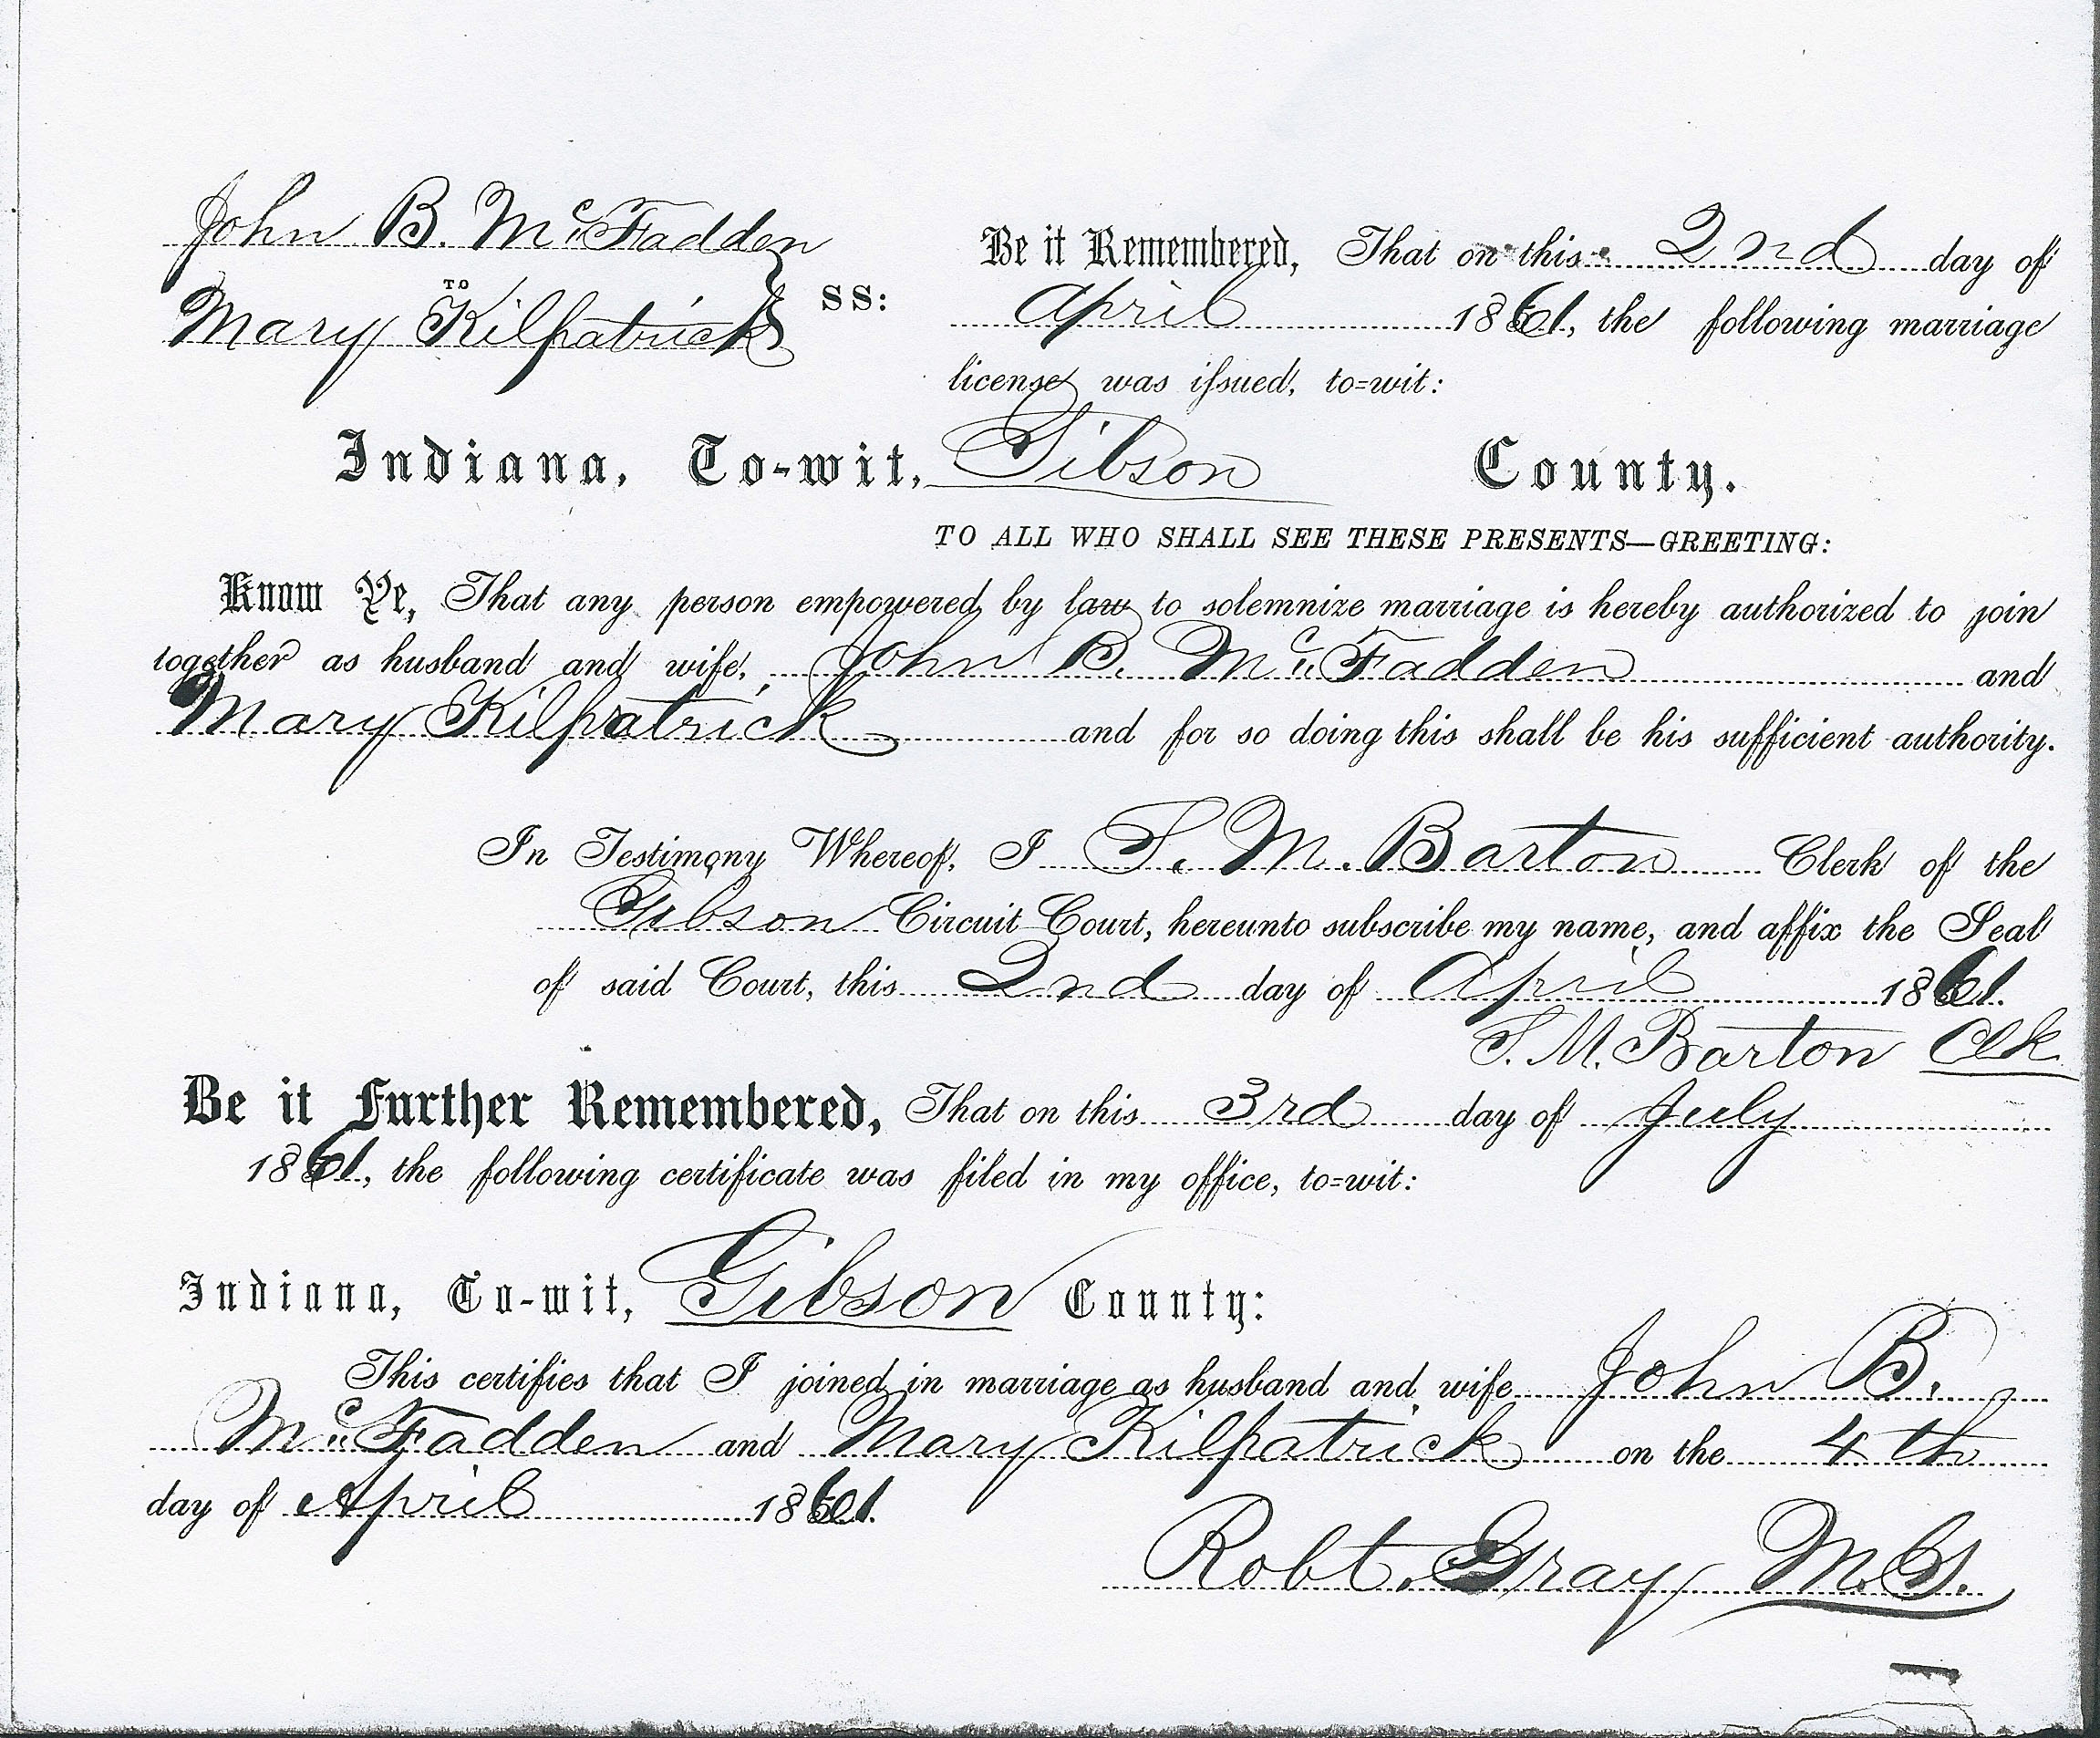 John B. McFadden
TO
Mary Kilpatrick
SS:
Be it Remembered, That on this 2nd day of
April 1861, the following marriage
license was issued, to=wit:
Indiana, To-wit, Gibson County.
TO ALL WHO SHALL SEE THESE PRESENTS—GREETING:
Know Ye, That any person empowered by law to solemnize marriage is hereby authorized to join
together as husband and wife, John B. McFadden and
Mary Kilpatrick and for so doing this shall be his sufficient authority.
In Testimony Whereof, I S. M. Barton Clerk of the
Gibson Circuit Court, hereunto subscribe my name, and affix the Seal
of said Court, this 2nd day of April 1861.
S. M. Barton Clk
Be it Further Remembered, That on this 3rd day of July
1861, the following certificate was filed in my office, to=wit:
Indiana, To-wit, Gibson County:
This certifies that I joined in marriage as husband and wife John B.
McFadden and Mary Kilpatrick on the 4th
day of April 1861.
Robt. Gray M.G.